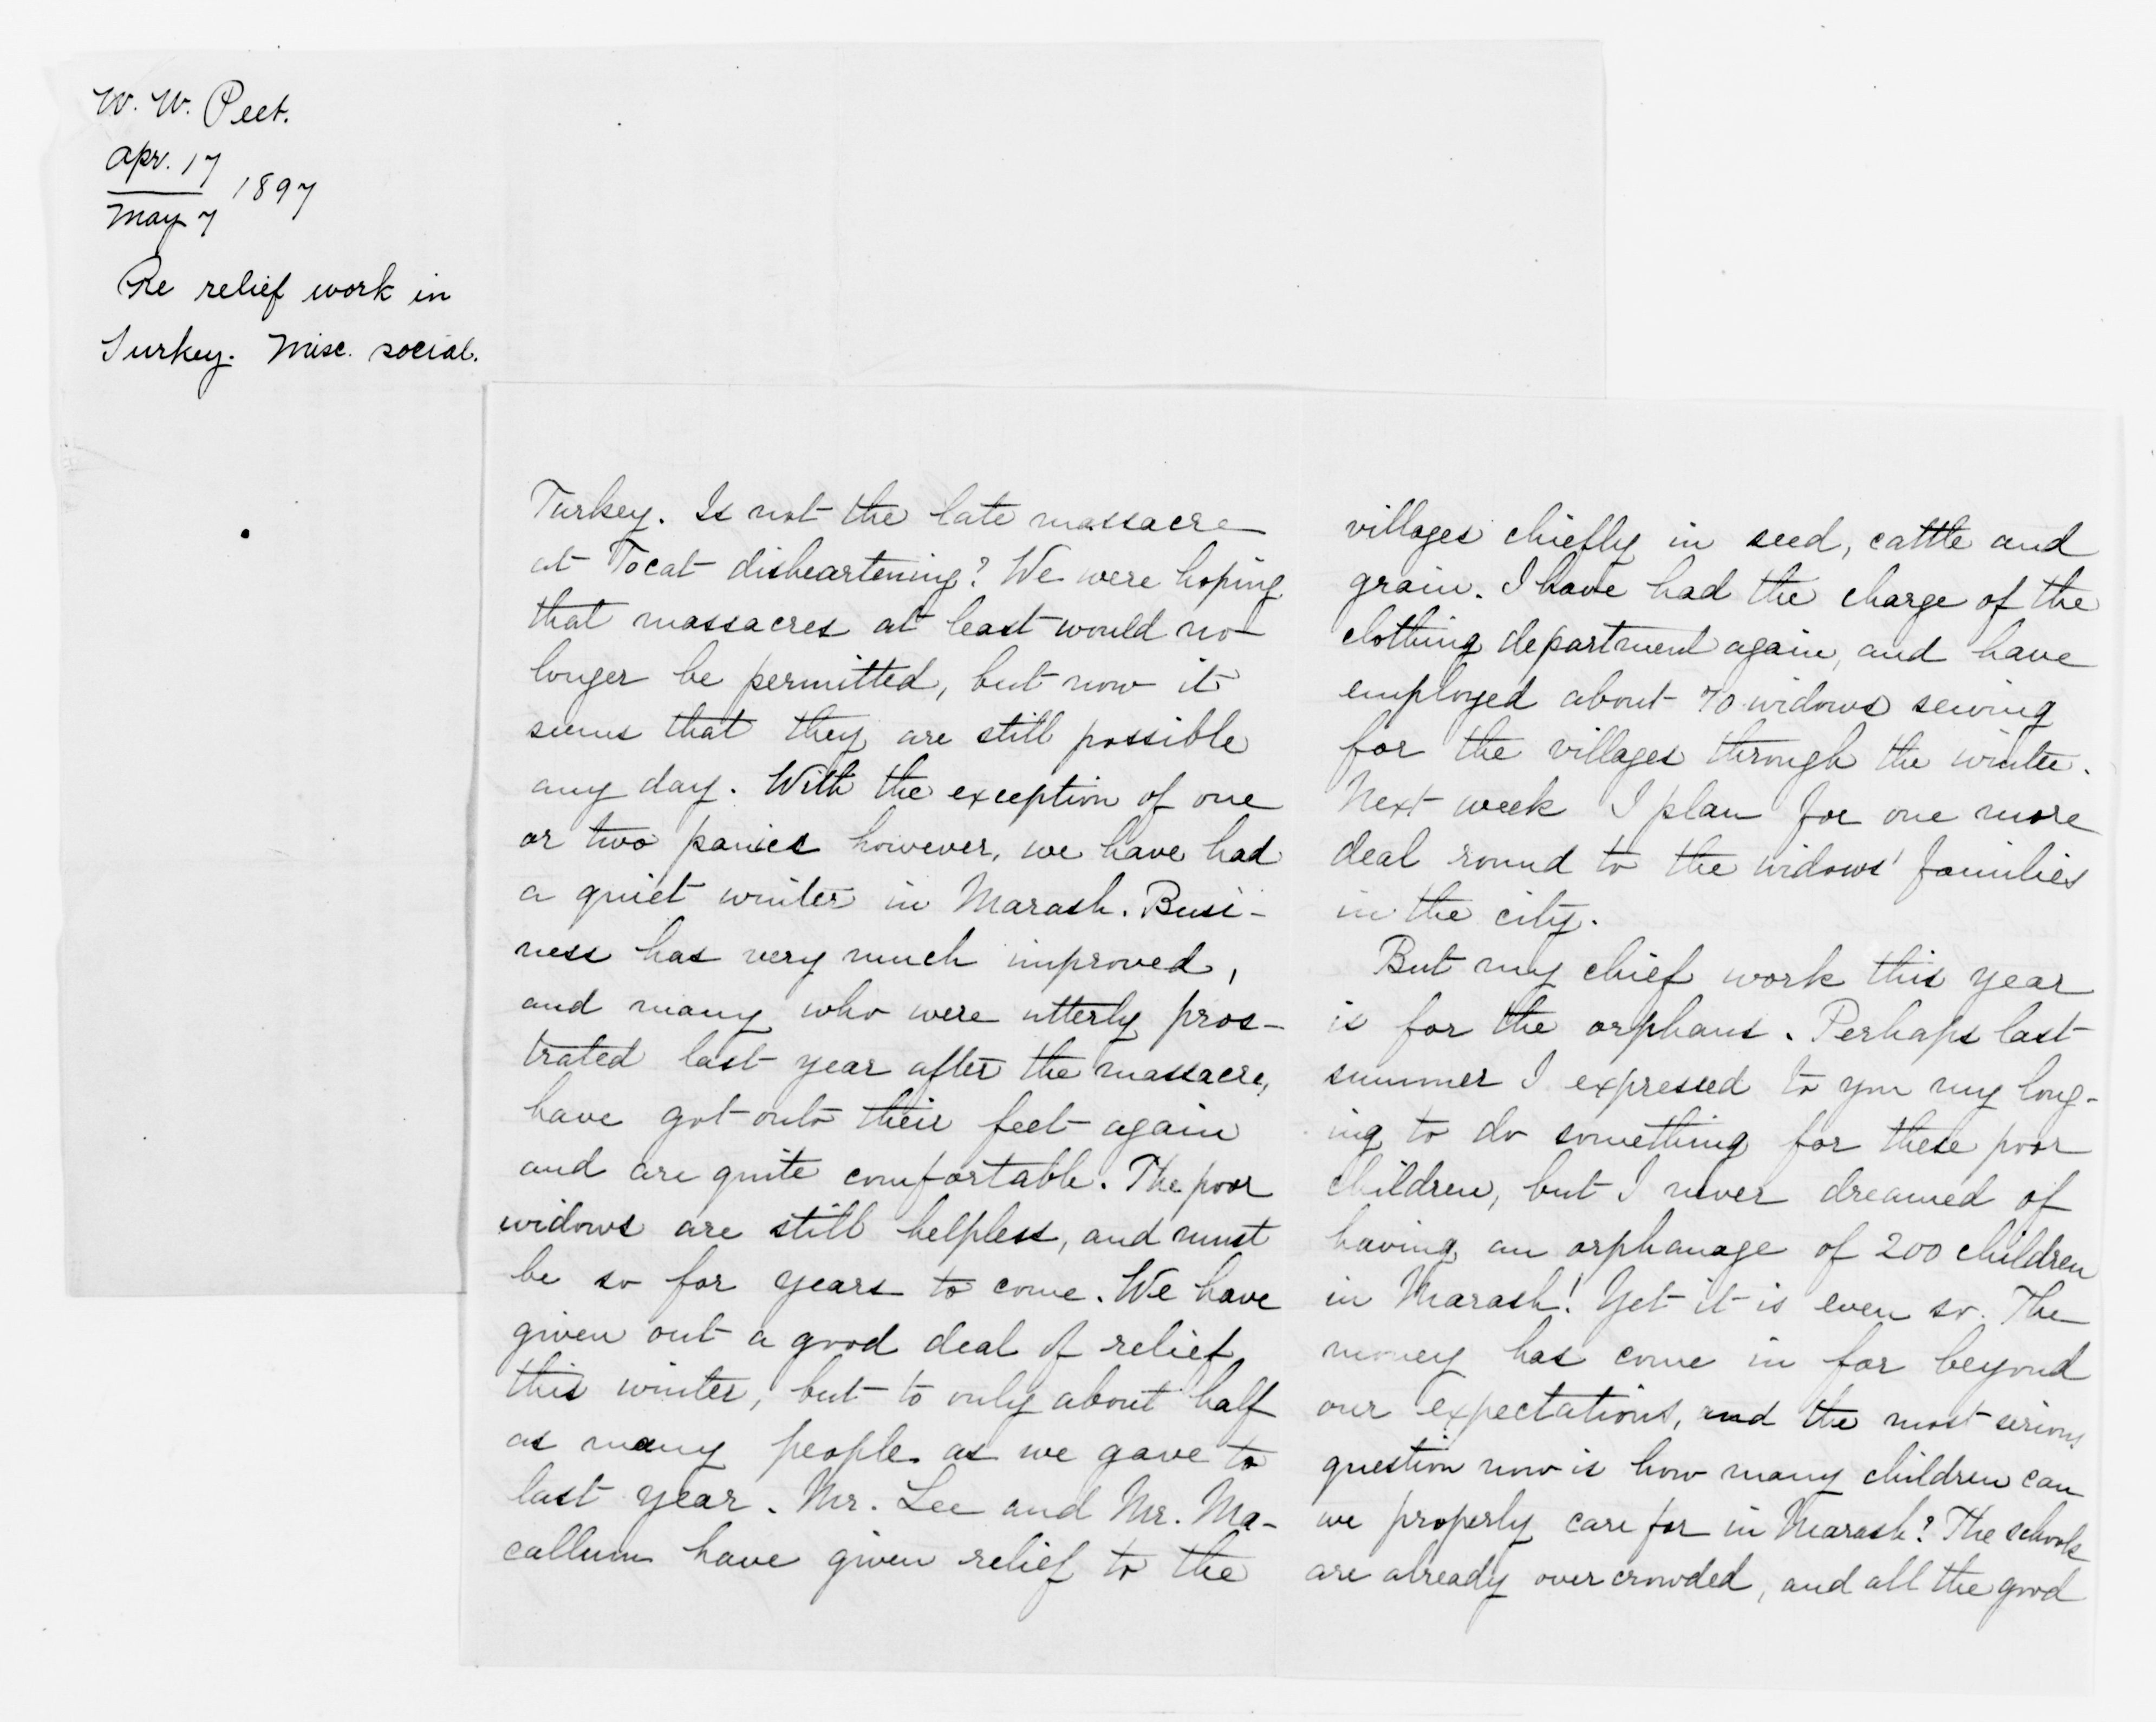 W. W. Peet.
Apr. 17
1897
May 7
Re relief work in
Turkey. Misc. social.
Turkey. Is not the late massacre
at Tocat disheartening? We were hoping
that massacres at least would no
longer be permitted, but now it
seems that they are still possible
any day. With the exception of one
or two panics however, we have had
a quiet winter in Marash. Busi-
ness has very much improved,
and many who were utterly pros-
trated last year after the massacre,
have got onto their feet again
and are quite comfortable. The poor
widows are still helpless, and must
be so for years to come. We have
given out a good deal of relief
this winter, but to only about half
as many people as we gave to
last year. Mr. Lee and Mr. Ma-
callum have given relief to the
villages chiefly in seed, cattle and
grain. I have had the charge of the
clothing department again, and have
employed about 70 widows sewing
for the villages through the winter.
Next week I plan for one more
deal round to the widows' families
in the city.
But my chief work this year
is for the orphans. Perhaps last
summer I expressed to you my long-
ing to do something for these poor
children, but I never dreamed of
having an orphanage of 200 children
in Marash! Yet it is even so. The
money has come in far beyond
our expectations, and the most serious
question now is how many children can
we properly care for in Marash? The schools
are already overcrowded, and all the good